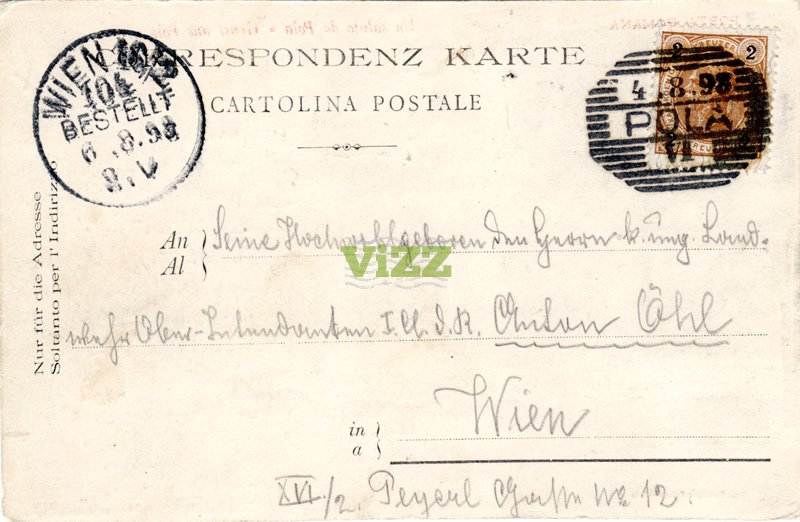 Un saluto da Pola - Gruss aus Pola
CORRESPONDENZ KARTE
CARTOLINA POSTALE
WIEN 10/2
104
BESTELLT
6.8.98
8.V
2 KREUZER 2
4 8.98
POLA
VI
Nur für die Adresse
Soltanto per l'Indirizzo
An
Al
Seine Hochwohlgeboren den Herrn k. ung. Land-
wehr Ober-Intendanten I. Cl. d. R. Anton Öhl
ViZZ
in
a
Wien
XVI/2. Peyerl Gasse No 12.